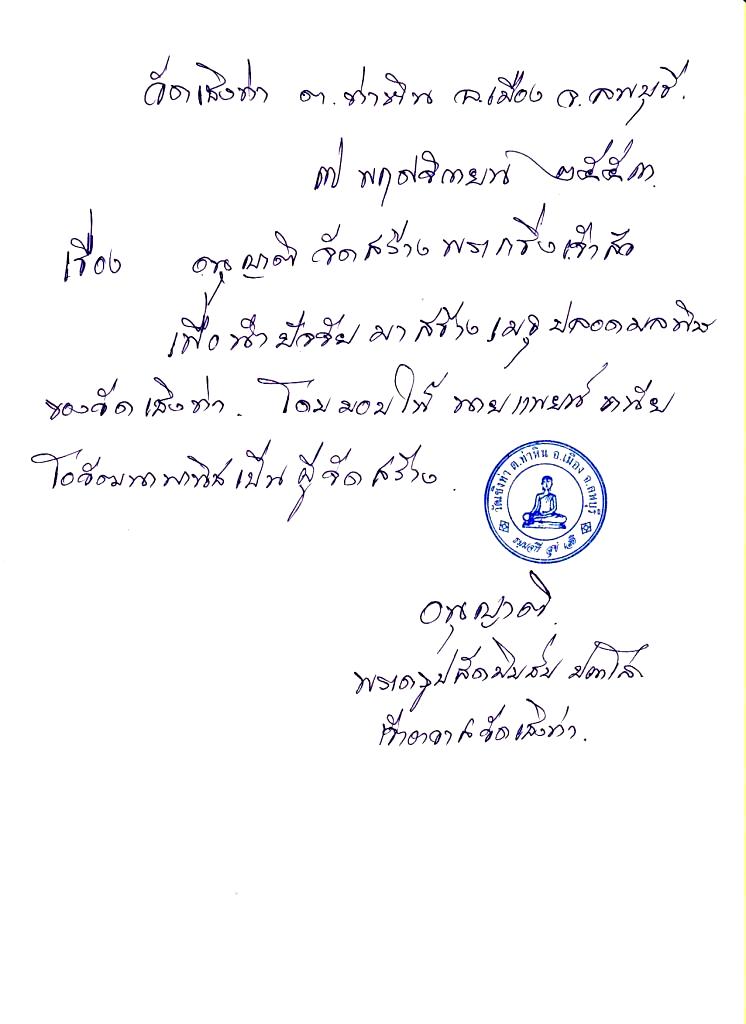 วัดเชิงท่า ต.ท่าหิน อ.เมือง จ.ลพบุรี.
๗ พฤศจิกายน ๒๕๕๓.
เรื่อง อนุญาติ จัดสร้าง พระกริ่งเจ้าสัว
เพื่อนำปัจจัย มาสร้าง เมรุ ปลอดมลพิษ
ของวัดเชิงท่า. โดยมอบให้ นายแพทย์
เป็น ผู้จัดสร้าง.
วัดเชิงท่า ต.ท่าหิน อ.เมือง จ.ลพบุรี
อนุญาติ.
พระครู
เจ้าอาวาสวัดเชิงท่า.